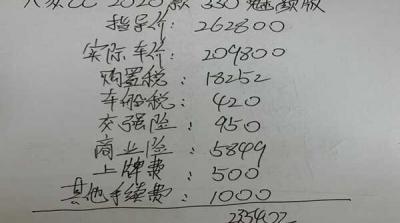 大众CC 2020款 330 魅颜版
指导价: 262800
实际车价: 209800
购置税: 18252
车船税: 420
交强险: 950
商业险: 5849
上牌费: 500
其他手续费: 1000